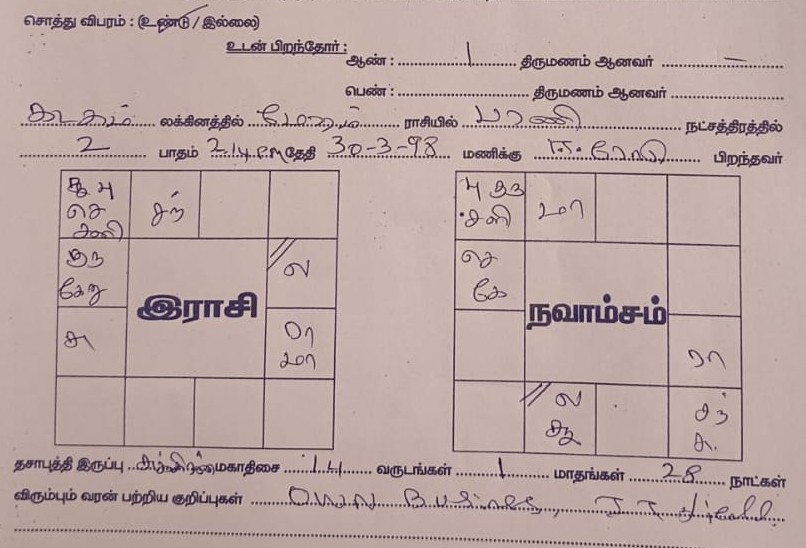 சொத்து விபரம் : (உண்டு / இல்லை)
உடன் பிறந்தோர் :
ஆண் : 1 திருமணம் ஆனவர் –
பெண் : திருமணம் ஆனவர்
கடகம் லக்கினத்தில் மேஷம் ராசியில் பரணி நட்சத்திரத்தில்
2 பாதம் 2.14 P.M தேதி 30-3-98 மணிக்கு பிறந்தவர்
சூ பு சந்
செ
சனி
குரு ல
கேது
இராசி
சு ரா
மா
பு குரு மா
சனி
செ
கே
நவாம்சம்
ரா
ல சந்
சூ சு.
தசாபுத்தி இருப்பு சுக்கிரன் மகாதிசை 14 வருடங்கள் 1 மாதங்கள் 28 நாட்கள்
விரும்பும் வரன் பற்றிய குறிப்புகள் Own Business,